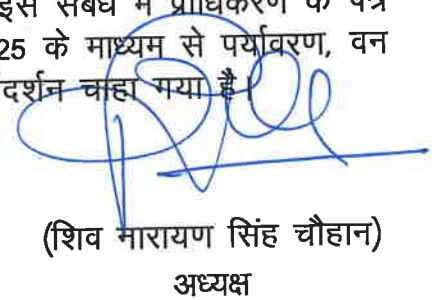 इस संबंध में प्राधिकरण के पत्र
25 के माध्यम से पर्यावरण, वन
दर्शन चाहा गया है।
(शिव नारायण सिंह चौहान)
अध्यक्ष